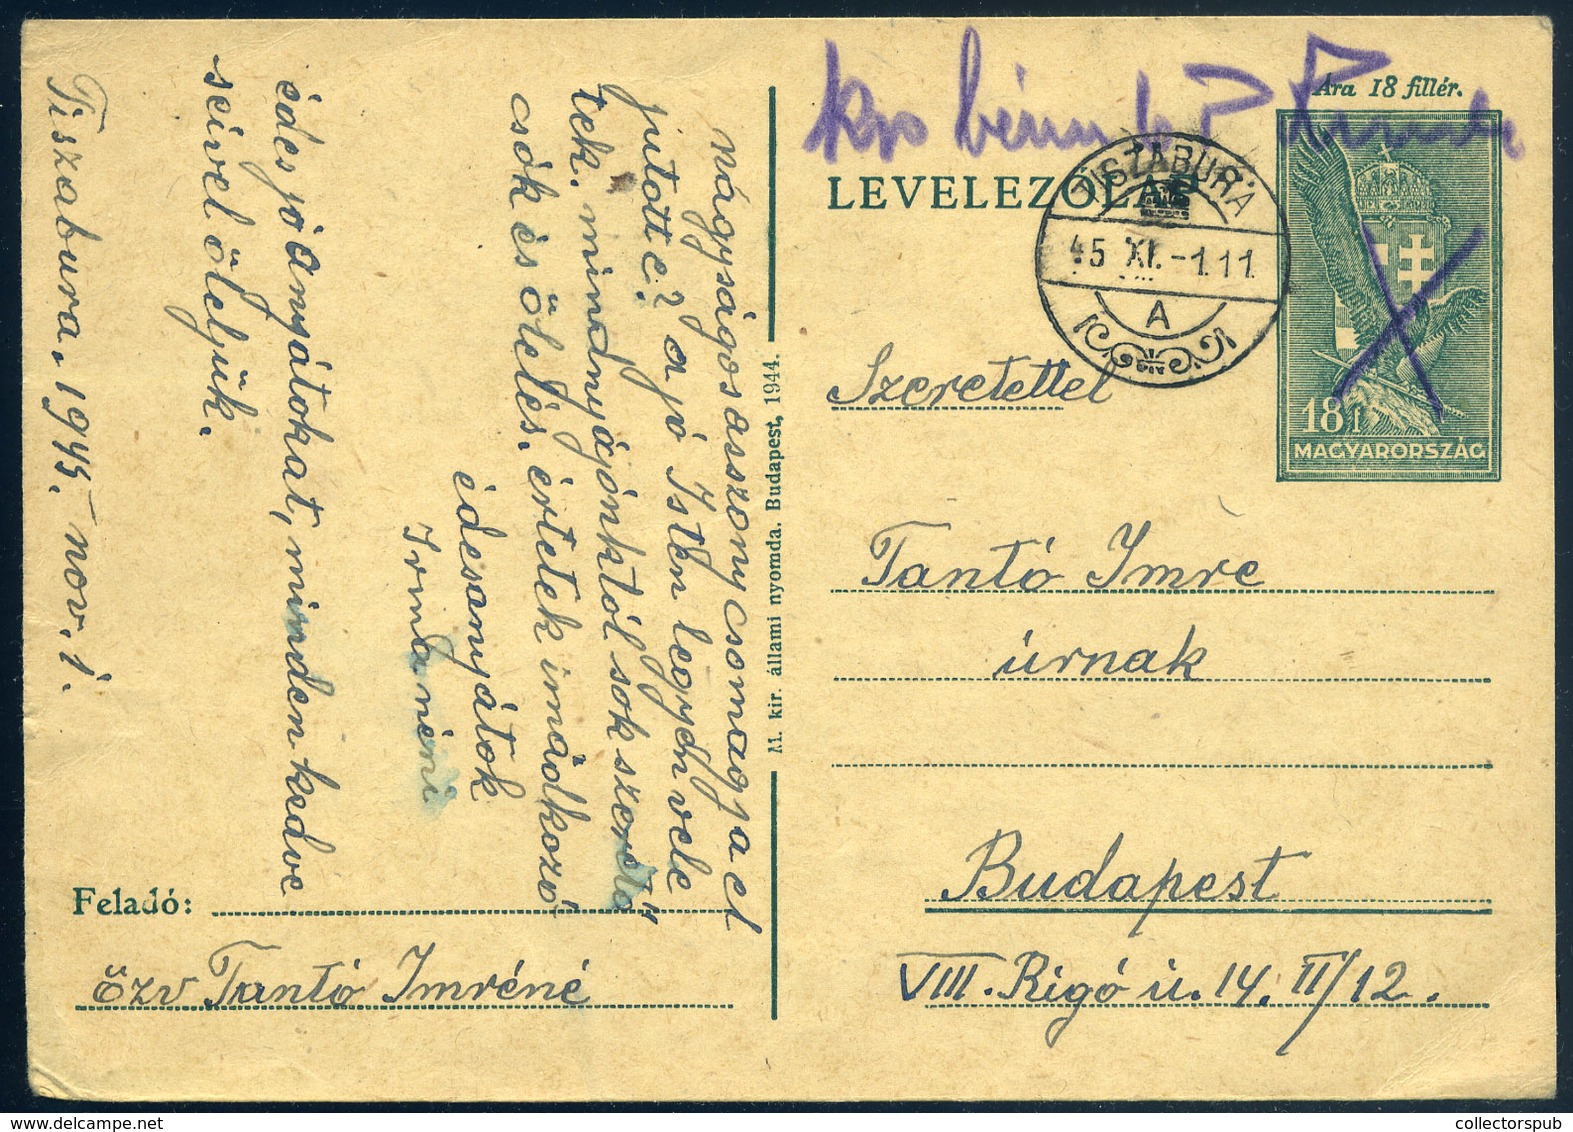 Ára 18 fillér.
LEVELEZŐLAP
TISZABURA
45 XI. -1.11.
A
18 f
MAGYARORSZÁG
Szeretettel
Tantó Imre
úrnak
Budapest
VIII. Rigó u. 14. II/12.
M. kir. állami nyomda, Budapest, 1944.
Feladó:
Özv Tantó Imréné
nágyságos asszony csomagja el
jutott e? a jó Isten legyen vele
tek. mindnyájónktól sok szerető
csók és ölelés. értetek imádkozó
édesanyátok
Irma néni
édes jó anyátokat, minden kedve
seivel öleljük.
Tiszabura. 1945. nov. 1.